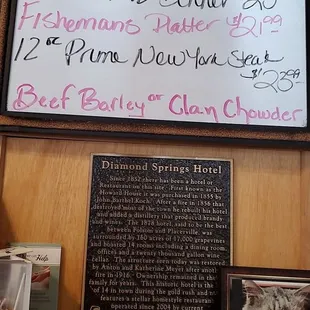 Dinner 20
Fishemans Platter $21.99
12 oz Prime New York Steak
$23.99
Beef Barley or Clan Chowder
Diamond Springs Hotel
Since 1852 there has been a hotel or
Restaurant on this site. First known as the
Howard House it was purchased in 1855 by
John Barthel Koch. After a fire in 1856 that
destroyed most of the town he rebuilt his hotel
and added a distillery that produced brandy
and wines. The 1878 hotel, said to be the best
between Folsom and Placerville, was
surrounded by 160 acres of 17,000 grapevines
and boasted 14 rooms including a dining room
office) and a twenty thousand gallon wine
cellar. The structure seen today was restored
by Anton and Katherine Meyer after another
fire in 1916. Ownership remained in the
family for years. This historic hotel is the
of 14 in town during the gold rush and
features a stellar homestyle restaurant
operated since 2004 by current